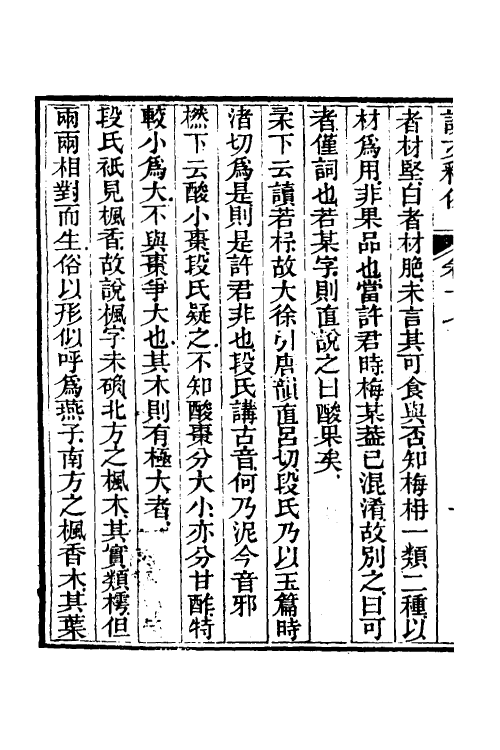 者材堅白者材脆未言其可食與否知梅柟一類二種以
材爲用非果品也當許君時梅某葢已混淆故別之曰可
者僅詞也若某字則直說之曰酸果矣
下云讀若故大徐引唐韻直呂切段氏乃以玉篇時
渚切爲是則是許君非也段氏講古音何乃泥今音邪
樲下云酸小棗段氏疑之不知酸棗分大小亦分甘酢特
較小爲大不與棗爭大也其木則有極大者
段氏衹見楓香故說楓字未确北方之楓木其實類樗但
兩兩相對而生俗以形似呼爲燕子南方之楓香木其葉